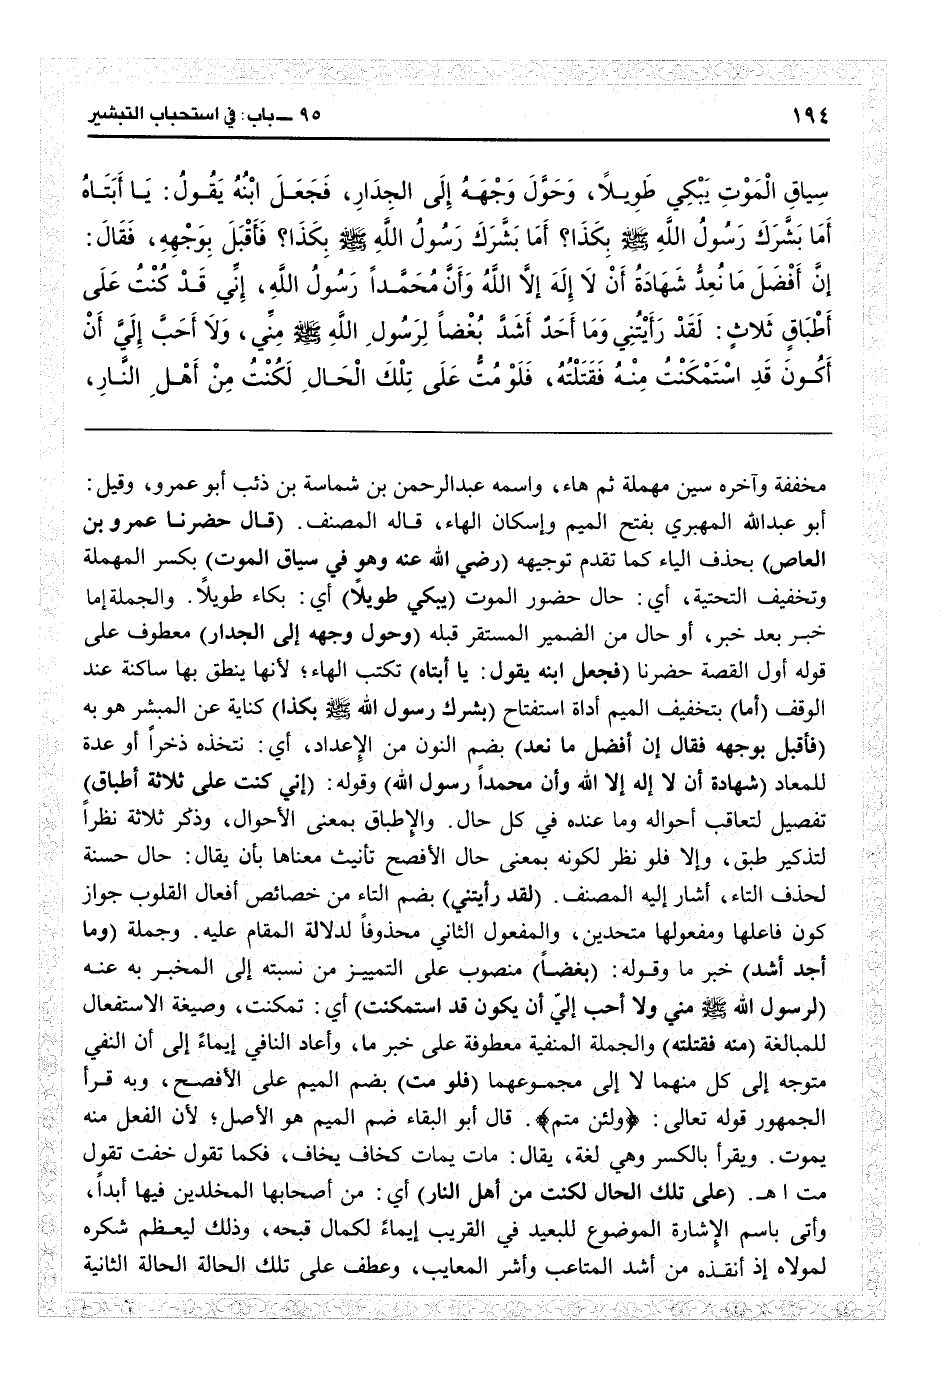 ١٩٤
٩٥ ــ باب: في استحباب التبشير
سِياقِ الْمَوْتِ يَبْكِي طَوِيـلًا، وَحَوَّلَ وَجْهَـهُ إِلَى الجِدَارِ، فَجَعَـلَ ابْنُهُ يَقُـولُ: يَـا أَبَتَـاهُ
أَمَا بَشَّرَكَ رَسُولُ اللَّهِ ﷺ بِكَذَا؟ أَمَا بَشَّرَكَ رَسُولُ اللَّهِ ﷺ بِكَذَا؟ فَأَقْبَلَ بِوَجْهِهِ، فَقَالَ:
إنَّ أَفْضَلَ مَا نُعِدُّ شَهَادَةُ أَنْ لَا إِلَهَ إلَّا اللَّهُ وَأَنَّ مُحَمَّـداً رَسُولُ اللَّهِ، إنِّي قَـدْ كُنْتُ عَلَى
أَطْبَاقٍ ثَلاثٍ: لَقَدْ رَأَيْتُنِي وَمَا أَحَدٌ أَشَدَّ بُغْضاً لِرَسُولِ اللَّهِ ﷺ مِنِّي، وَلَا أَحَبَّ إِلَيَّ أَنْ
أَكُـونَ قَدِ اسْتَمْكَنْتُ مِنْـهُ فَقَتَلْتُهُ، فَلَوْ مُتُّ عَلَى تِلْكَ الْحَـالِ لَكُنْتُ مِنْ أَهْـلِ النَّـارِ،
مخففة وآخره سين مهملة ثم هاء، واسمه عبدالرحمن بن شماسة بن ذئب أبو عمرو، وقيل:
أبو عبدالله المهبري بفتح الميم وإسكان الهاء، قـاله المصنف. (قـال حضرنـا عمرو بن
العاص) بحذف الياء كما تقدم توجيهه (رضي الله عنه وهو في سياق الموت) بكسر المهملة
وتخفيف التحتية، أي: حال حضور الموت (يبكي طويلًا) أي: بكاء طويلًا. والجملة إما
خبـر بعد خبر، أو حال من الضمير المستقر قبله (وحول وجهه إلى الجدار) معطوف على
قوله أول القصة حضرنا (فجعل ابنه يقول: يا أبتاه) تكتب الهاء؛ لأنها ينطق بها ساكنة عند
الوقف (أما) بتخفيف الميم أداة استفتاح (بشرك رسول الله ﷺ بكذا) كناية عن المبشر هو به
(فأقبل بوجهه فقال إن أفضل ما نعد) بضم النون من الإعداد، أي: نتخذه ذخراً أو عدة
للمعاد (شهادة أن لا إله إلا الله وأن محمداً رسول الله) وقوله: (إني كنت على ثلاثة أطباق)
تفصيل لتعاقب أحواله وما عنده في كل حال. والإطباق بمعنى الأحوال، وذكر ثلاثة نظراً
لتذكير طبق، وإلا فلو نظر لكونه بمعنى حال الأفصح تأنيث معناها بأن يقال: حال حسنة
لحذف التاء، أشار إليه المصنف. (لقد رأيتني) بضم التاء من خصائص أفعال القلوب جواز
كون فاعلها ومفعولها متحدين، والمفعول الثاني محذوفاً لدلالة المقام عليه. وجملة (وما
أجد أشد) خبر ما وقـوله: (بغضـاً) منصوب على التمييـز من نسبته إلى المخبـر به عنـه
(لرسول الله ﷺ مني ولا أحب إليّ أن يكون قد استمكنت) أي: تمكنت، وصيغة الاستفعال
للمبالغة (منه فقتلته) والجملة المنفية معطوفة على خبر ما، وأعاد النافي إيماءً إلى أن النفي
متوجه إلى كل منهما لا إلى مجمـوعهما (فلو مت) بضم الميم على الأفصـح، وبه قـرأ
الجمهور قوله تعالى: ﴿ولئن متم﴾. قال أبو البقاء ضم الميم هو الأصل؛ لأن الفعل منه
يموت. ويقرأ بالكسر وهي لغة، يقال: مات يمات كخاف يخاف، فكما تقول خفت تقول
مت ا هـ. (على تلك الحال لكنت من أهل النار) أي: من أصحابها المخلدين فيها أبداً،
وأتى باسم الإشارة الموضوع للبعيد في القريب إيماءً لكمال قبحه، وذلك ليعـظم شكره
لمولاه إذ أنقـذه من أشد المتاعب وأشر المعايب، وعطف على تلك الحالة الحالة الثانية